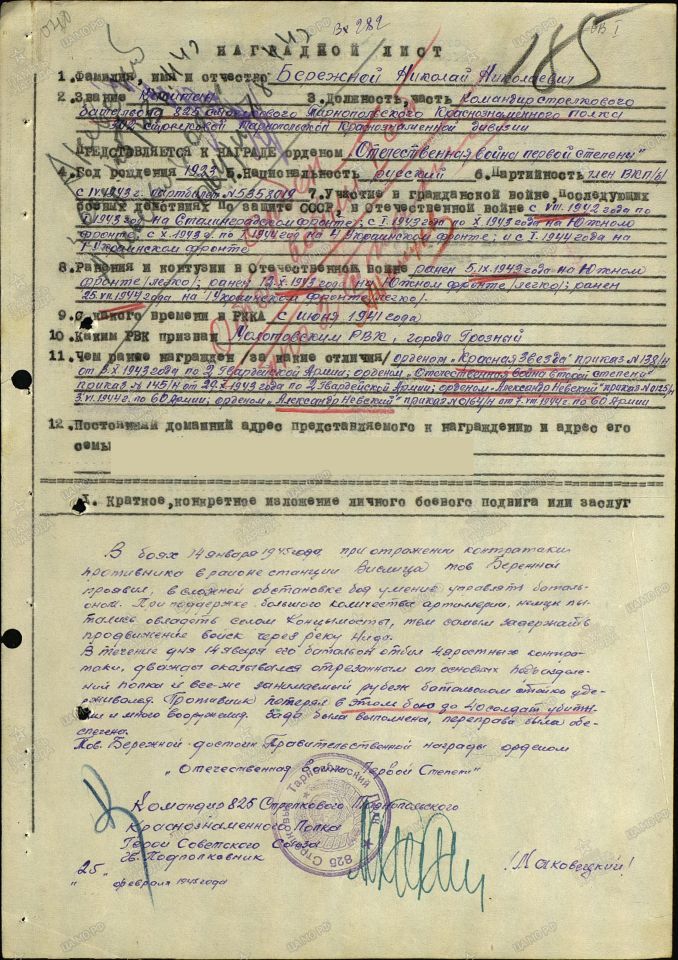 Вх 282
185
НАГРАДНОЙ ЛИСТ
1. Фамилия, имя и отчество Бережной Николай Николаевич
2. Звание Капитан 3. Должность, часть Командир стрелкового
батальона 825 стрелкового Тарнопольского Краснознаменного полка
302 стрелковой Тарнопольской Краснознаменной дивизии
ПРЕДСТАВЛЯЕТСЯ К НАГРАДЕ орденом „Отечественная война первой степени"
4. Год рождения 1923 5. Национальность русский 6. Партийность член ВКП/б/
с IV.1943г. партбилет N 5353019 7. Участие в гражданской войне, последующих
боевых действиях по защите СССР, и Отечественной войне с VIII.1942 года по
I.1943 год на Сталинградском фронте; с I.1943 года по X.1943 года на Южном
фронте, с X.1943 г. по I.1944 года на 4 Украинском фронте; и с I.1944 года на
1 Украинском фронте
8. Ранения и контузии в Отечественной войне ранен 5.IX.1943 года на Южном
фронте /легко/; ранен 13.X.1943 года на Южном фронте /легко/; ранен
25.VII.1944 года на 1 Украинском фронте /легко/.
9. С какого времени в РККА с июня 1941 года
10. Каким РВК призван Молотовским РВК, города Грозный
11. Чем ранее награжден за какие отличия/ орденом „Красная Звезда" приказ N 138/н
от 5.X.1943 года по 2 Гвардейской Армии; орденом „Отечественная война второй степени"
приказ N 145/н от 29.X.1943 года по 2 Гвардейской Армии; орденом „Александр Невский" приказ N 0125/н
3.VI.1944 г. по 60 Армии; орденом „Александр Невский" приказ N 0164/н от 7.VIII.1944 г. по 60 Армии
12. Постоянный домашний адрес представляемого к награждению и адрес его
семьи
I. Краткое, конкретное изложение личного боевого подвига или заслуг
В боях 14 января 1945 года при отражении контратаки
противника в районе станции Вислица тов Бережной
проявил, в сложной обстановке боя умение управлять баталь-
оном. При поддержке большого количества артиллерии, немцы пы-
тались овладеть селом, тем самым задержать
продвижение войск через реку Нида.
В течение дня 14 января его батальон отбил 4 яростных контра-
таки, дважды оказывался отрезанным от основных подразделе-
ний полка и все-же занимаемый рубеж батальоном стойко уде-
рживался. Противник потерял в этом бою до 40 солдат убиты-
ми и много вооружения. Задача была выполнена, переправа была обе-
спечена.
Тов. Бережной достоин Правительственной награды орденом
„Отечественная война Первой Степени"
Командир 825 Стрелкового Тарнопольского
Краснознаменного Полка
Герой Советского Союза
Гв. Подполковник
/Маковецкий/
"25"
февраля 1945 года
825 Стрелковый Тарнопольский
ЦАМО РФ